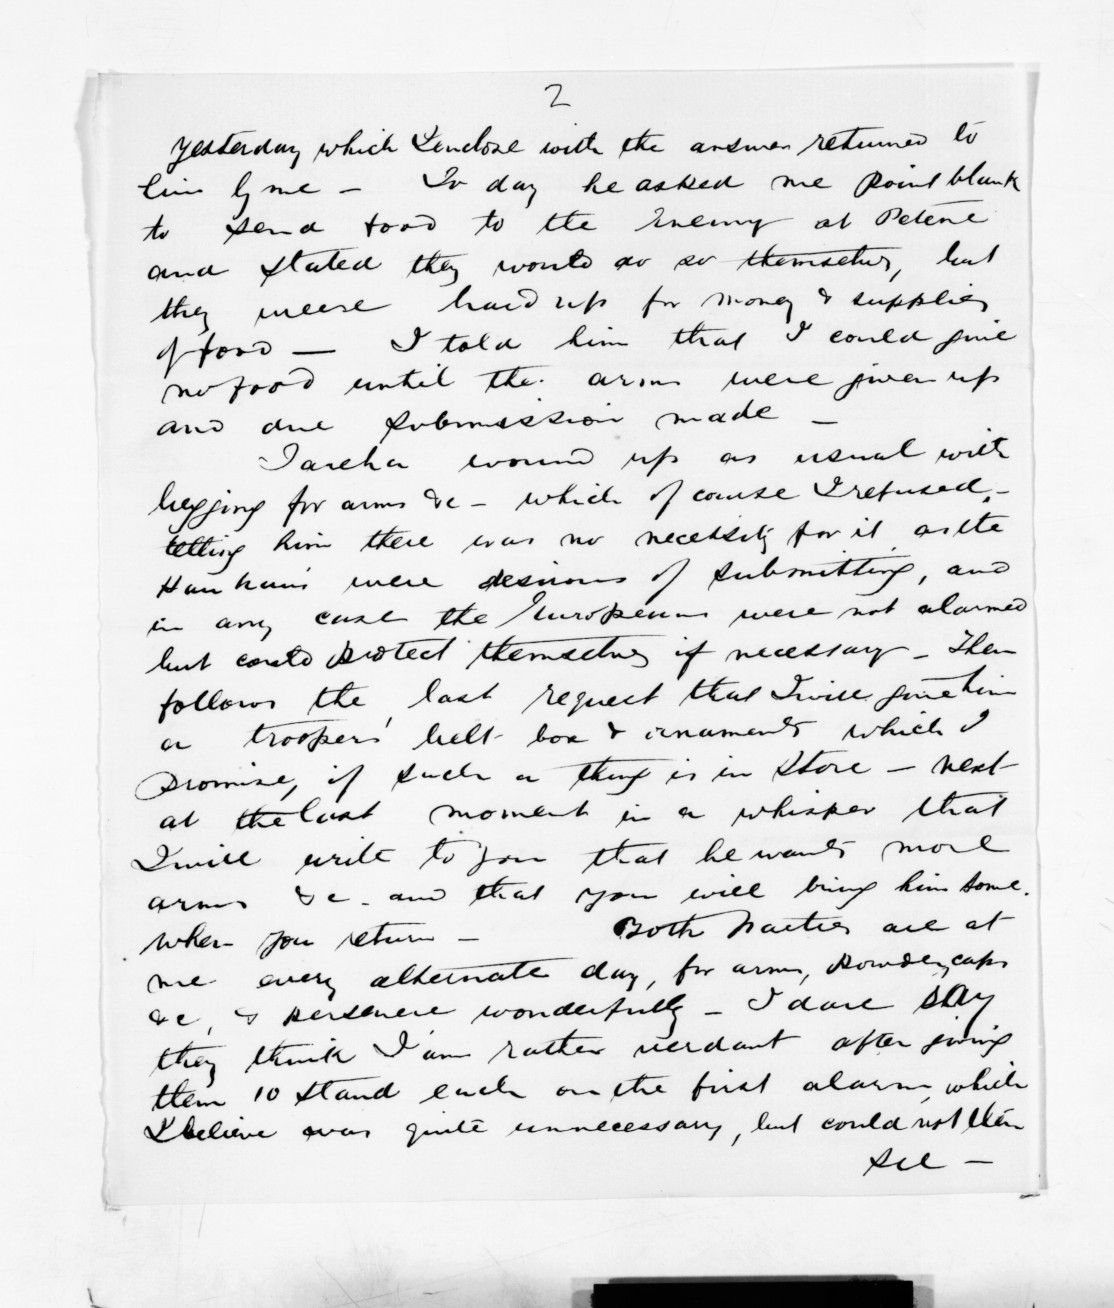 2
yesterday which I enclose with the answer returned to
him by me - To day he asked me point blank
to send food to the Enemy at Petane
and stated they would do so themselves, but
they were hard up for money & supplies
of food - I told him that I could give
no food until the arms were given up
and due submission made -
Tareha wound up as usual with
begging for arms &c - which of course I refused, -
telling him there was no necessity for it as the
Hau haus were desirous of submitting, and
in any case the Europeans were not alarmed
but could protect themselves if necessary - Then
follows the last request that I will give him
a troopers' belt box & ornaments which I
promise, if such a thing is in Store - next
at the last moment in a whisper that
I will write to you that he wants more
arms &c. and that you will bring him some.
when you return - Both Parties are at
me every alternate day, for arms, powder, caps
&c, & persevere wonderfully - I dare say
they think I am rather verdant after giving
them 10 stand each on the first alarm, which
I believe was quite unnecessary, but could not then
see -